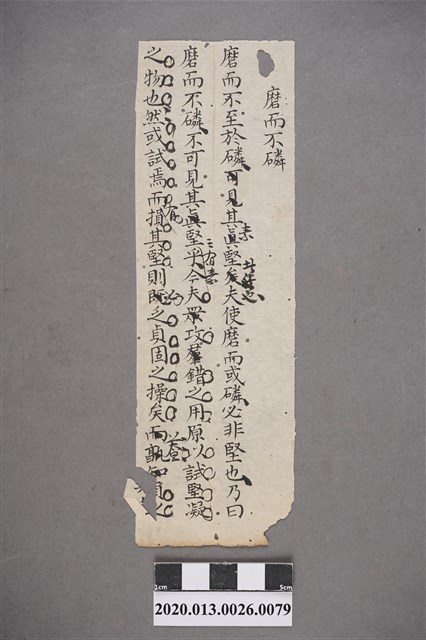 磨而不磷
磨而不至於磷可見其真堅矣夫使磨而或磷必非堅也乃曰
磨而不磷不可見其真堅乎今夫眾攻羣錯之用原以試堅凝
之物也然或試焉而損其堅則既乏貞固之操矣而孰知
1cm
5cm
2020.013.0026.0079